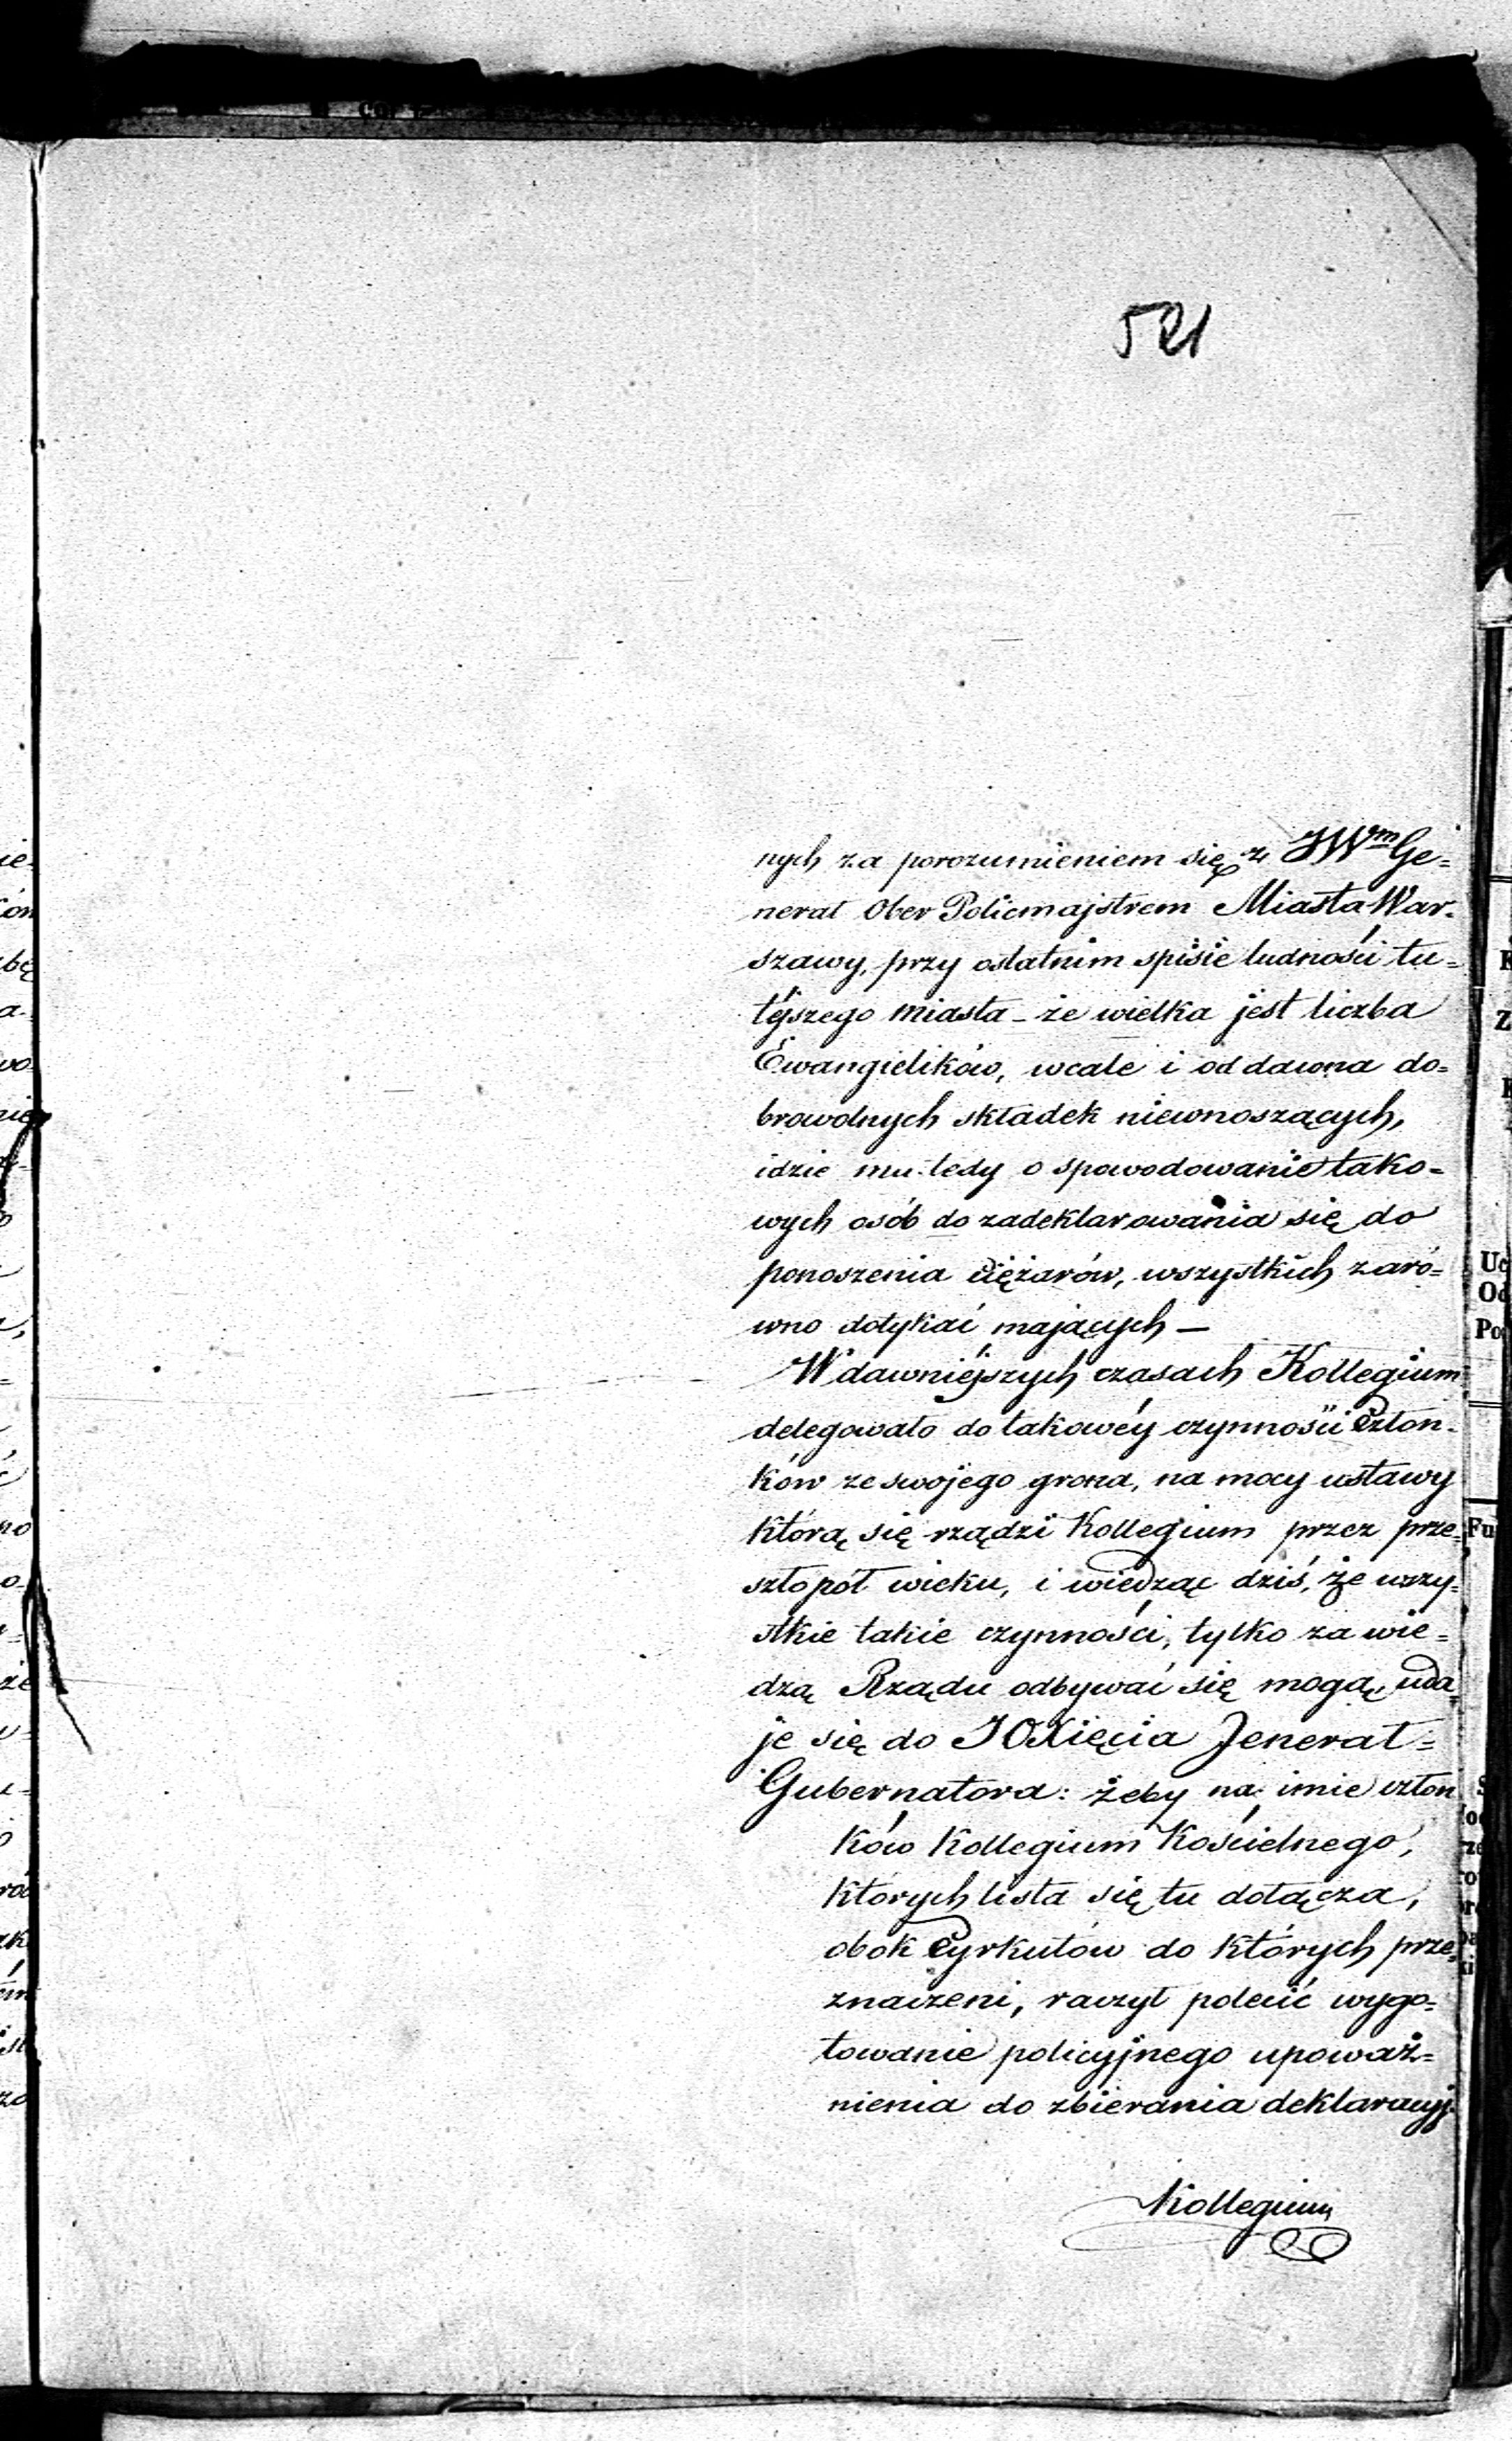 521
nych za porozumieniem się z JW^m Ge=
nerał Ober Policmajstrem Miasta War=
szawy, przy ostatnim spisie ludności tu=
téjszego miasta – że wielka jest liczba
Ewangielików, wcale i od dawna do=
browolnych składek niewnoszących,
idzie mu tedy o spowodowanie tako=
wych osób do zadeklarowania się do
ponoszenia ciężarów, wszystkich zaró=
wno dotykać mających —
W dawniéjszych czasach Kollegium
delegowało do takowéy czynności Człon=
ków ze swojego grona, na mocy ustawy
którą się rządzi Kollegium przez prze=
szło pół wieku, i wiedząc dziś, że wszy=
stkie takie czynności, tylko za wie=
dzą Rządu odbywać się mogą, uda=
je się do JOXięcia Jenerał=
Gubernatora: żeby na imie człon
ków Kollegium Kościelnego,
których lista się tu dołącza,
obok Cyrkułów do których prze=
znaczeni, raczył polecić wygo=
towanie policyjnego upoważ=
nienia do zbierania deklaracyj.
Kollegium